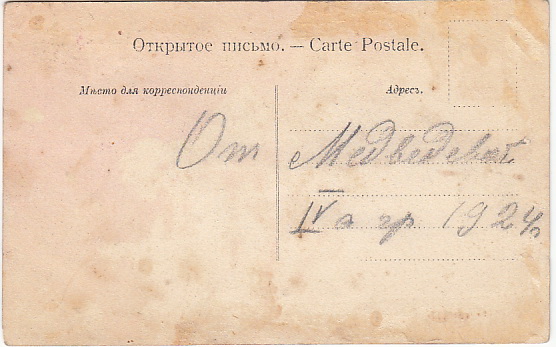 Открытое письмо. — Carte Postale.
Мѣсто для корреспонденціи
Адресъ.
От Медведевой
IV а гр 1924г